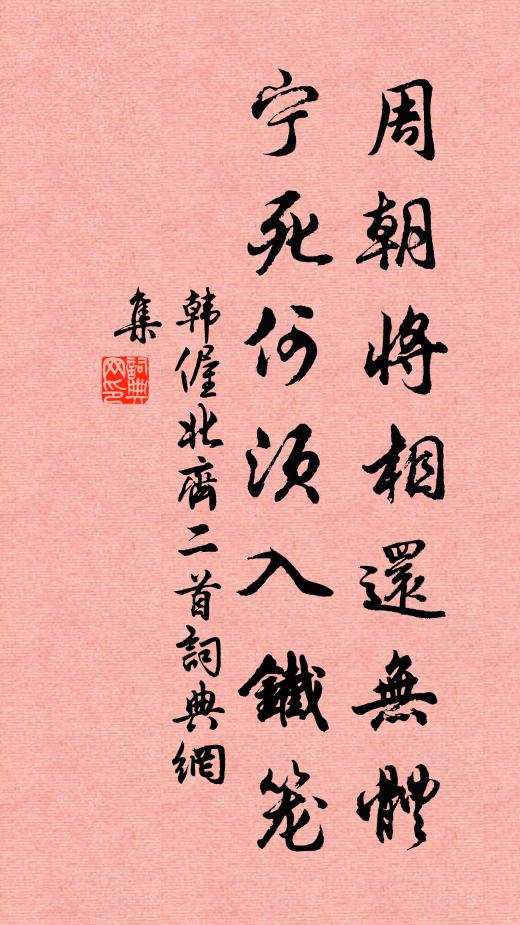 周朝將相還無體
宁死何須入鐵笼
韩偓北齊二首詞典網
集
詞典
网印